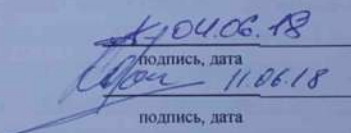 04.06.18
подпись, дата
11.06.18
подпись, дата